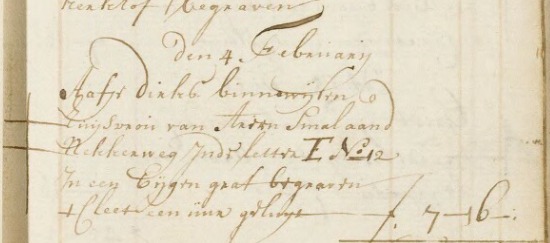 kerkhof Begraven
den 4 Februarij
Aafje Dirks binnewijken
huijsvrou van Arien Smal aand
Nekkerweg Inde letter E No 12
In een Eijgen graf begraven
t Cleet een uur geluijt — f. 7—16—: